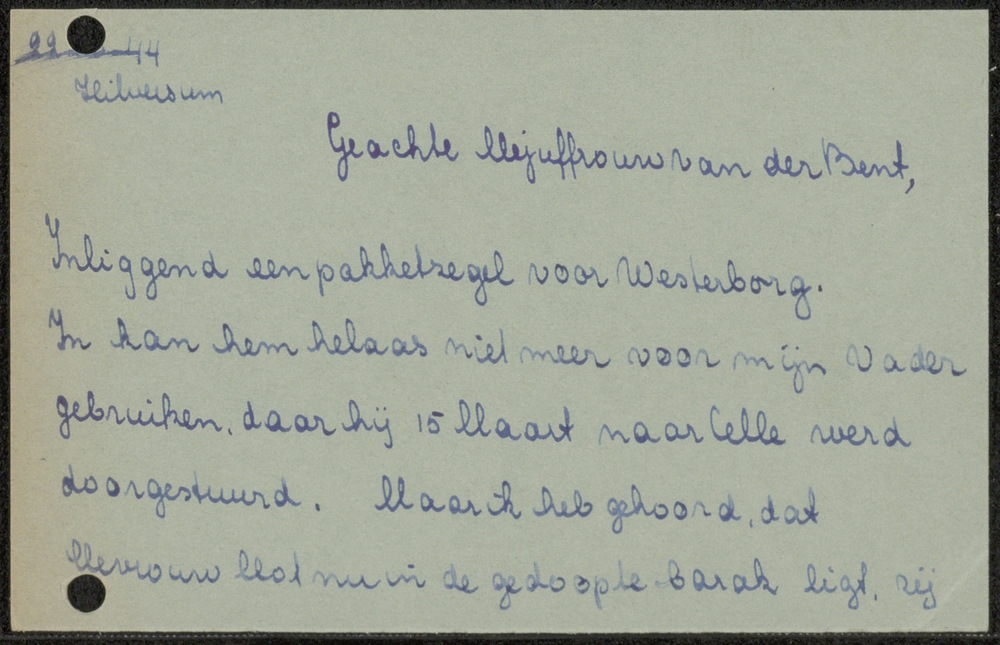 22 44
Hilversum
Geachte Mejuffrouw van der Bent,
Inliggend een pakketzegel voor Westerborg.
Ik kan hem helaas niet meer voor mijn Vader
gebruiken, daar hij 15 Maart naar Celle werd
doorgestuurd. Maar ik heb gehoord, dat
Mevrouw Mot nu in de gedoopte barak ligt, zij